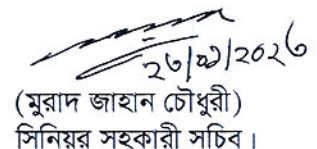 ২৬/০১/২০২৬
(মুরাদ জাহান চৌধুরী)
সিনিয়র সহকারী সচিব।